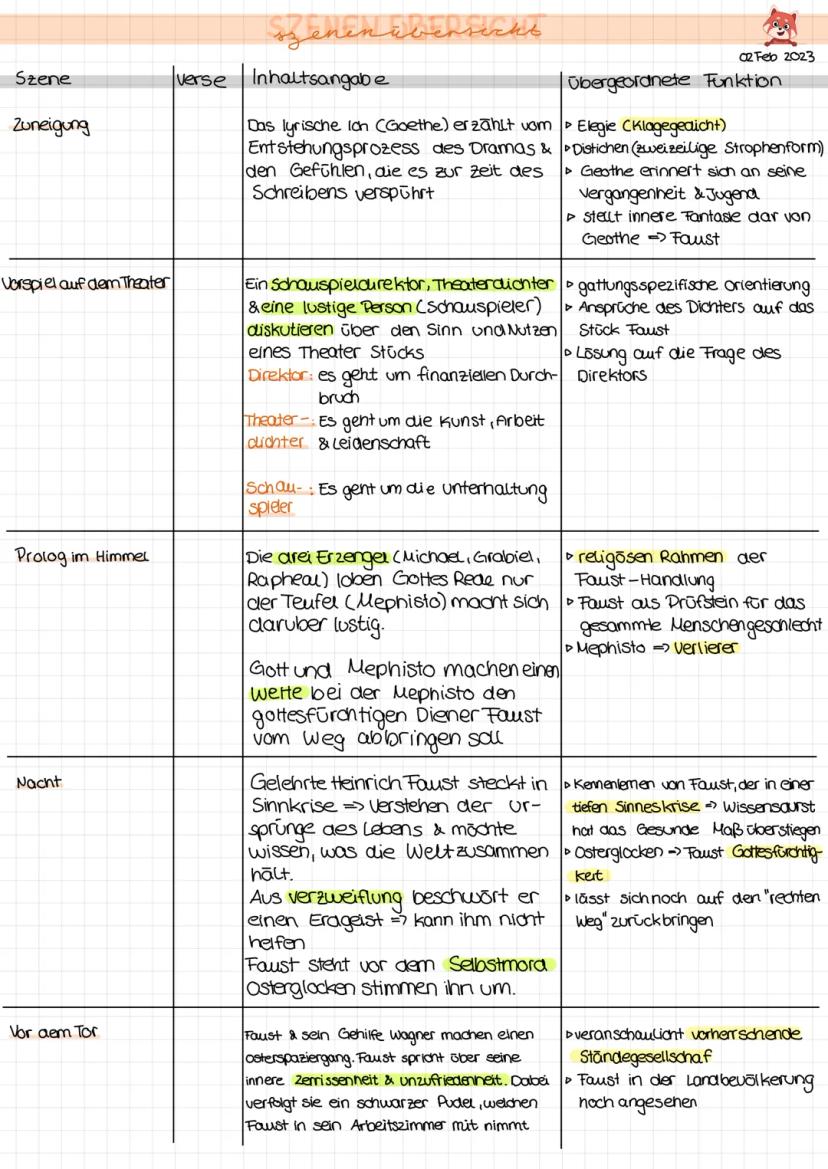 SZENENÜBERSICHT
szenenübersicht
02 Feb 2023
Szene
Verse
Inhaltsangabe
übergeordnete Funktion
Zuneigung
Das lyrische Ich (Goethe) erzählt vom
Entstehungsprozess des Dramas &
den Gefühlen, die es zur Zeit des
Schreibens verspührt
▹ Elegie (Klagegedicht)
▹ Distichen (zweizeilige Strophenform)
▹ Geothe erinnert sich an seine
Vergangenheit & Jugend
▹ stellt innere Fantasie dar von
Geothe => Faust
Vorspiel auf dem Theater
Ein Schauspieldirektor, Theaterdichter
& eine lustige Person (Schauspieler)
diskutieren über den Sinn und Nutzen
eines Theater Stücks
Direktor: es geht um finanziellen Durch-
bruch
Theater-: Es geht um die Kunst, Arbeit
dichter & Leidenschaft
Schau-: Es geht um die Unterhaltung
spieler
▹ gattungsspezifische Orientierung
▹ Ansprüche des Dichters auf das
Stück Faust
▹ Lösung auf die Frage des
Direktors
Prolog im Himmel
Die drei Erzengel (Michael, Grabiel,
Rapheal) loben Gottes Rede nur
der Teufel (Mephisto) macht sich
daruber lustig.
Gott und Mephisto machen einen
Wette bei der Mephisto den
gottesfürchtigen Diener Faust
vom Weg abbringen soll
▹ religösen Rahmen der
Faust-Handlung
▹ Faust als Prüfstein für das
gesammte Menschengeschlecht
▹ Mephisto => Verlierer
Nacht
Gelehrte Heinrich Faust steckt in
Sinnkrise => Verstehen der Ur-
sprünge des Lebens & möchte
wissen, was die Welt zusammen
hält.
Aus Verzweiflung beschwört er
einen Erdgeist => kann ihm nicht
helfen
Faust steht vor dem Selbstmord
Osterglocken stimmen ihn um.
▹ Kennenlernen von Faust, der in einer
tiefen Sinneskrise => Wissensdurst
hat das Gesunde Maß überstiegen
▹ Osterglocken => Faust Gottesfürchtig-
keit
▹ lässt sich noch auf den "rechten
Weg" zurückbringen
Vor dem Tor
Faust & sein Gehilfe Wagner machen einen
Osterspaziergang. Faust spricht über seine
innere Zerrissenheit & Unzufriedenheit. Dabei
verfolgt sie ein schwarzer Pudel, welchen
Faust in sein Arbeitszimmer mit nimmt
▹ veranschaulicht vorherrschende
Ständegesellschaf
▹ Faust in der Landbevölkerung
noch angesehen